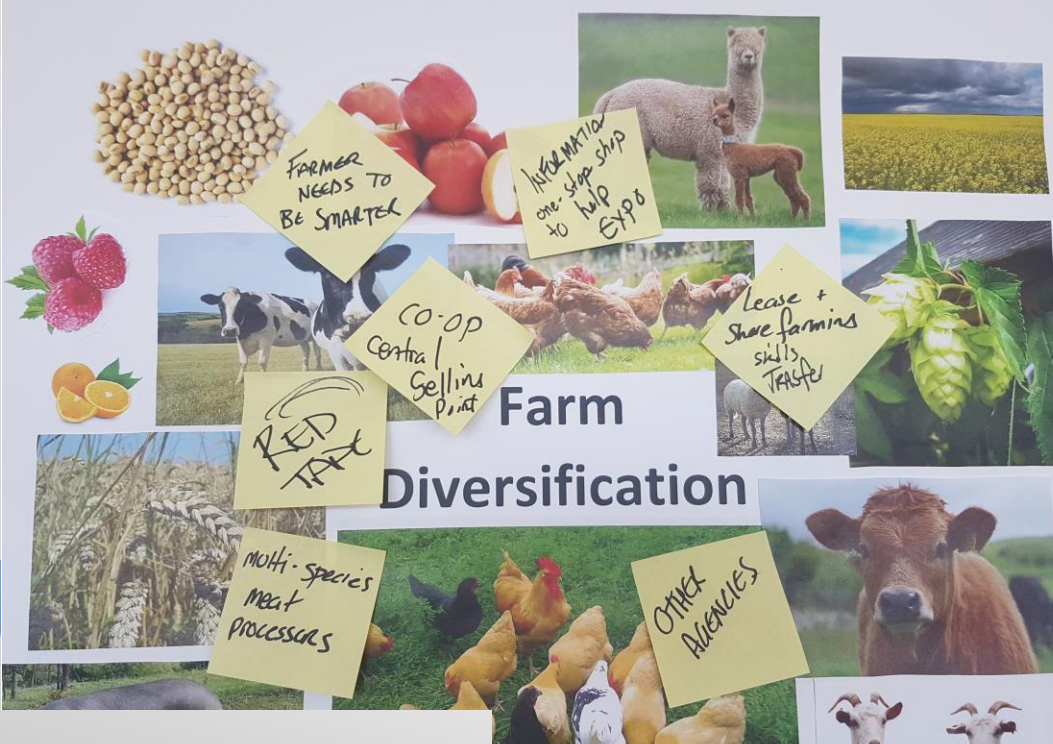 FARMER
NEEDS TO
BE SMARTER
INFORMATION
one-stop shop
to help
EXPO
CO-OP
central
Selling
Point
Lease +
Share farming
skills
TRASfer
RED
TAPE
Farm
Diversification
Multi-species
meat
PROCESSORS
OTHER
AGENCIES